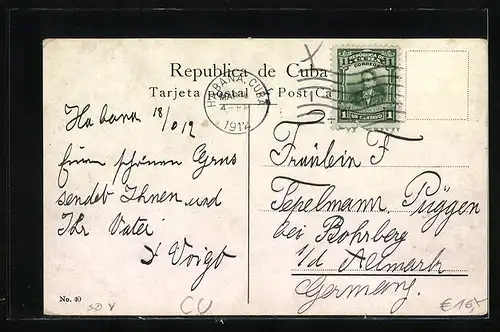 Republica de Cuba
Tarjeta postal Post Ca
HABANA, CUBA
4-PM
1912
CORREOS
1 UN CENTAVO 1
Habana 18/ 12
Einen schönen Gruss
sendet Ihnen und
Ihr Vater
Voigt
Fräulein F
Tepelmann. Püggen
bei Bohrberg
i/d Altmark
Germany.
No. 40
SD V
CU
€16,-